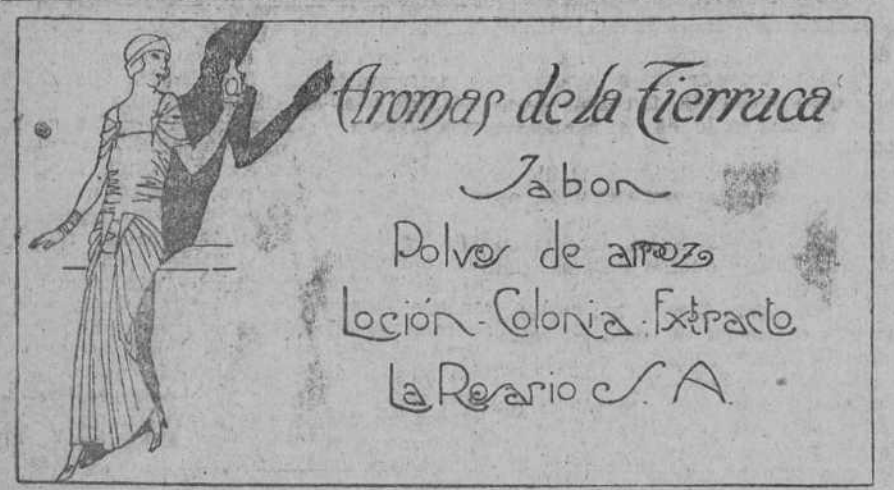 Aromas de la Tierruca
Jabon
Polvos de arroz
Loción - Colonia. Extracto
La Rosario S. A.